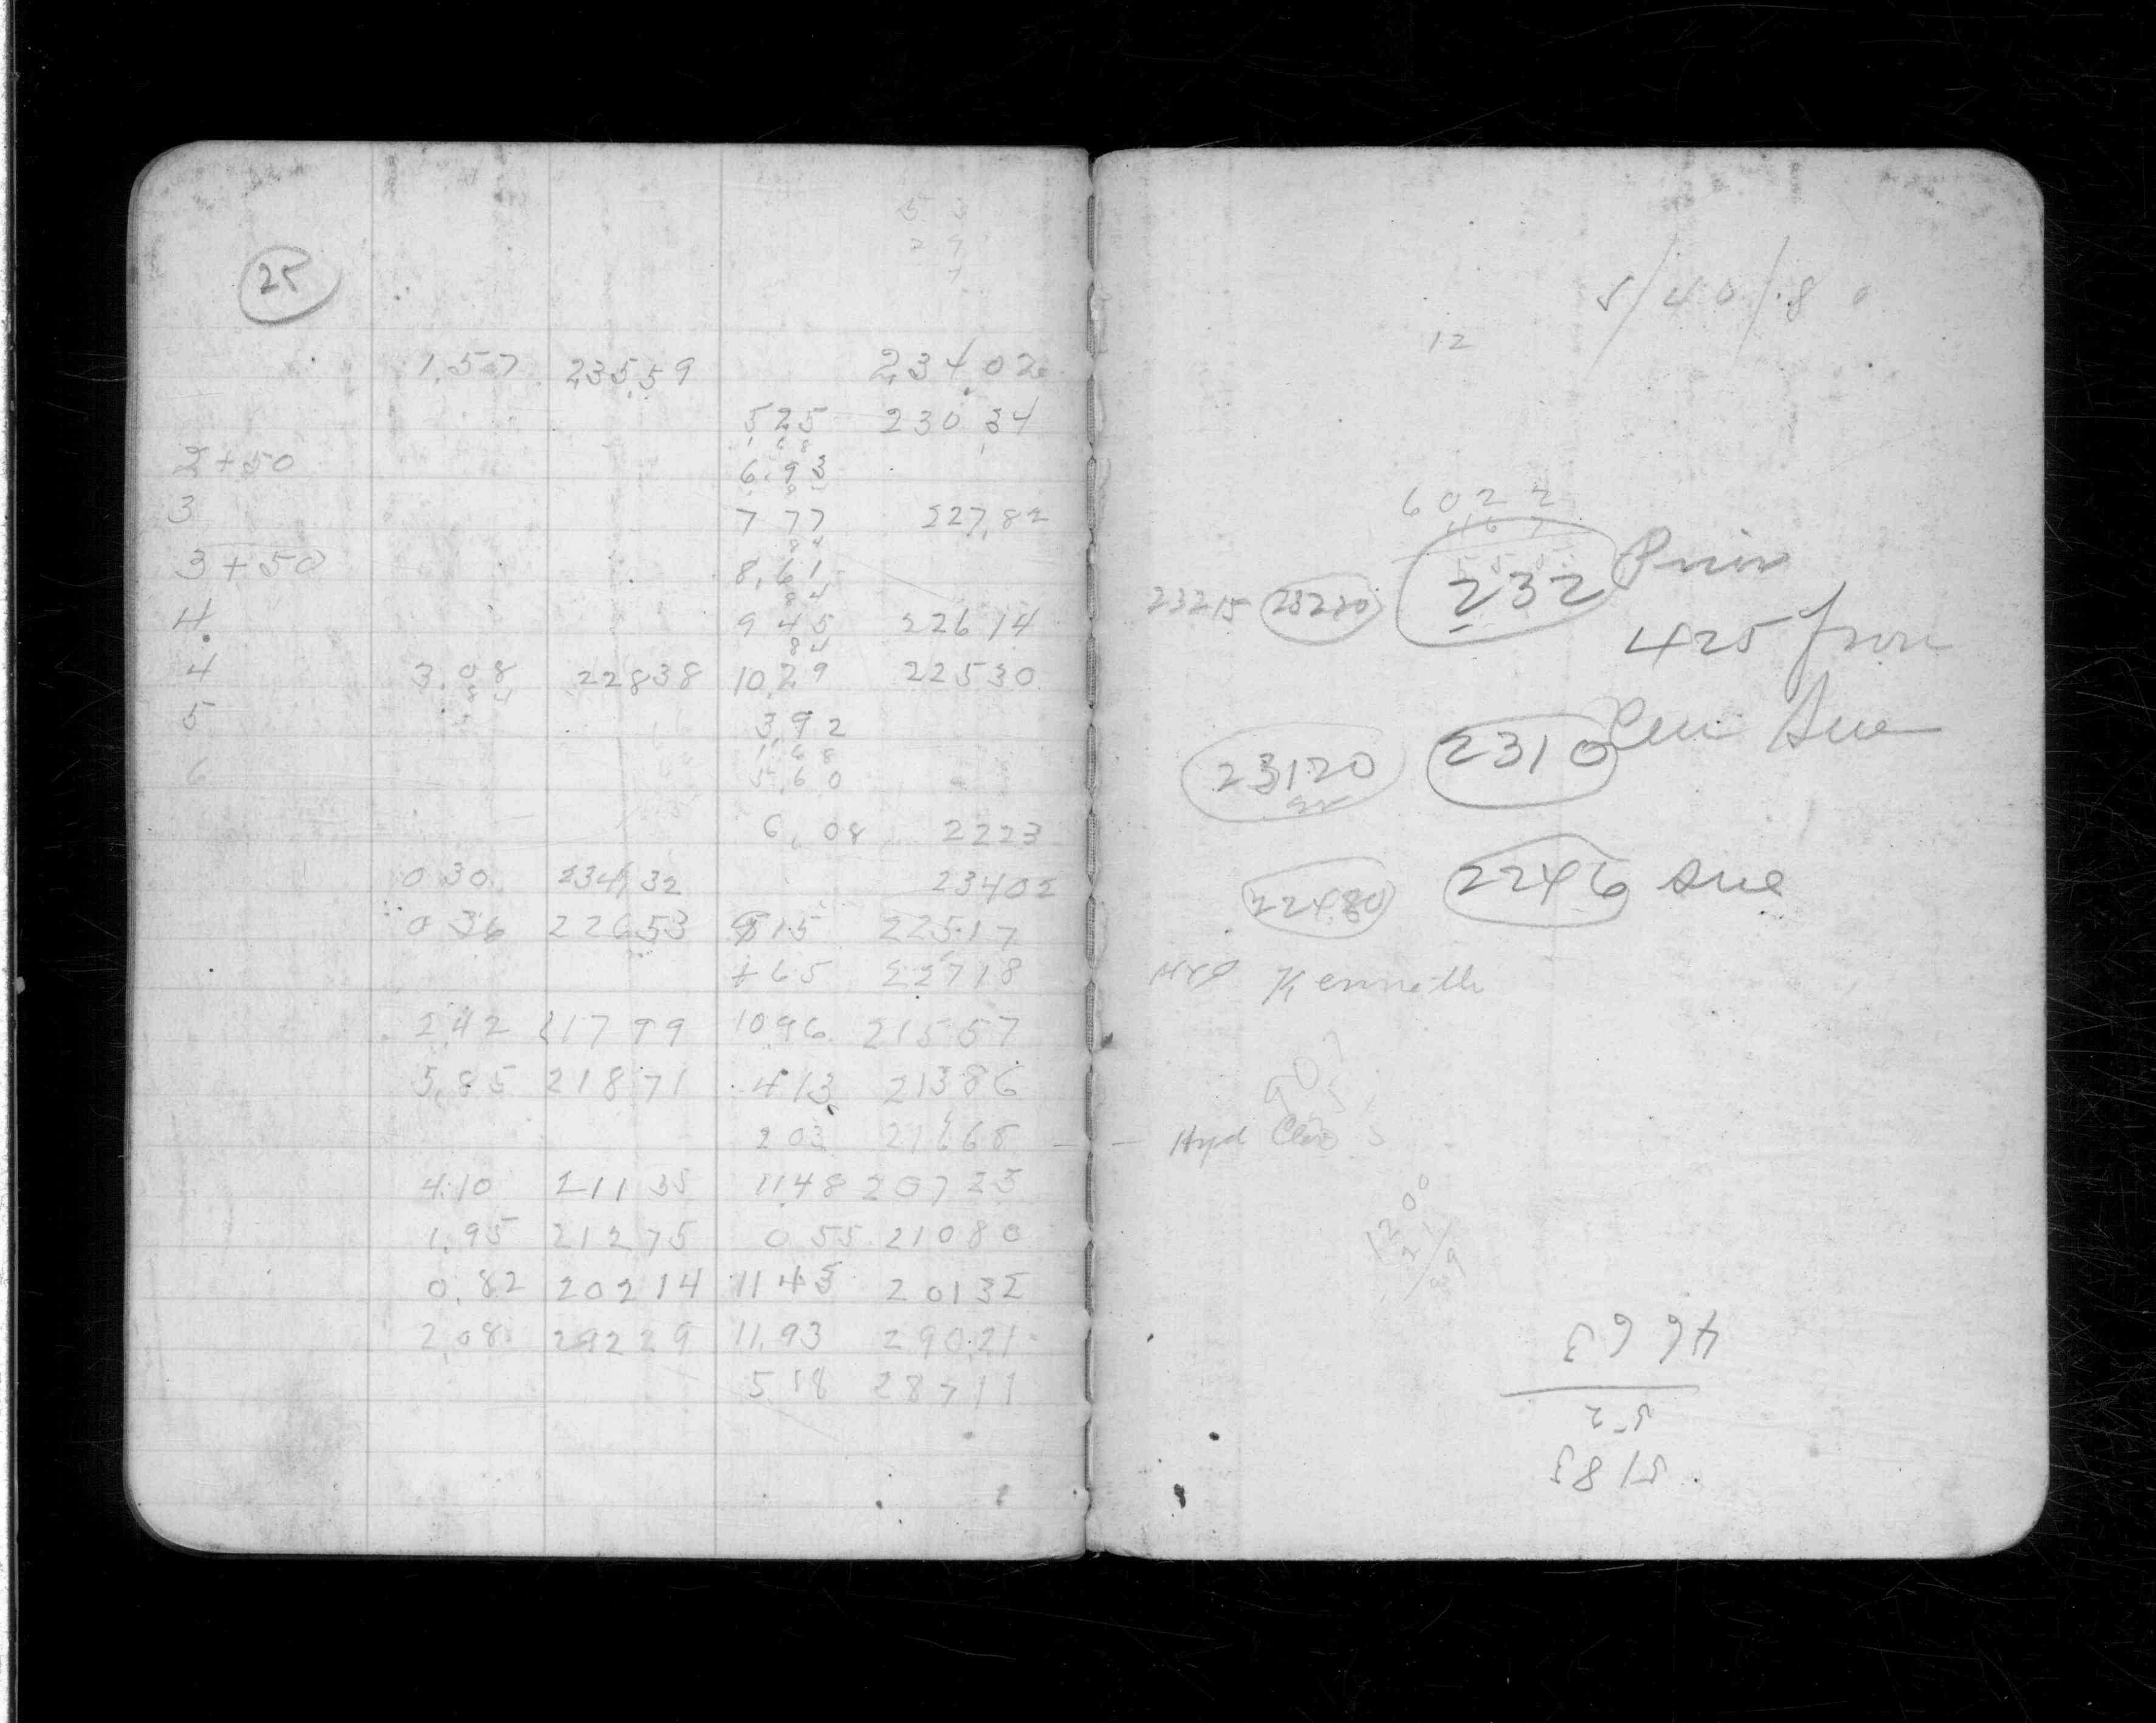 25
1.57 235.59 234.02
525 230 34
68
2+50 6.93
3 7 77 227.82
84
3+50 8.61
84
4 9 45 226 14
84
4 3.08 228 38 10.29 225 30
84
5 3.92
1 68
6 5.60
6.08 2223
0 30 234 32 234 02
0 36 226 53 9 15 225.17
+65 227 18
2.42 217 99 10.96 215 57
5.85 218 71 4 13 213 86
2 03
4.10 211 35 11.48 207 23
1.95 212 75 0 55 210 80
0.82 202 14 11 43 201 32
2.08 292 29 11.93 290.21
5.18 287 11
5/40/.80
12
602 2
116 7
23215 23220 232 Prior
425 from
23120 2310
22480 2246 Ave
Hyd Kenneth
Hyd
1200
4663
52
5183